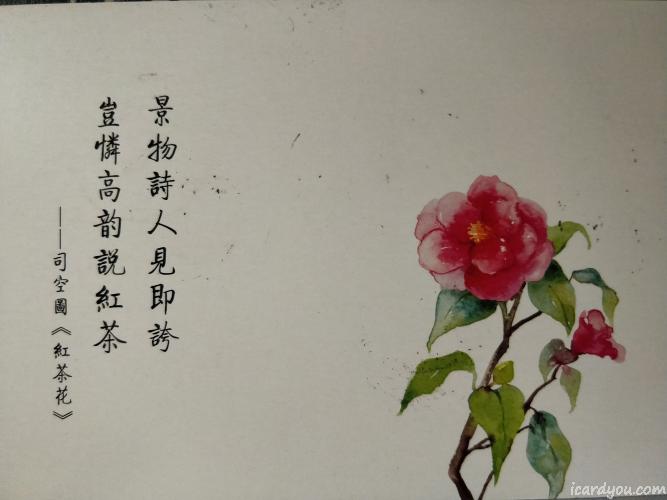 景物詩人見即誇
豈憐高韵説紅茶
——司空圖《紅茶花》
icardyou.com